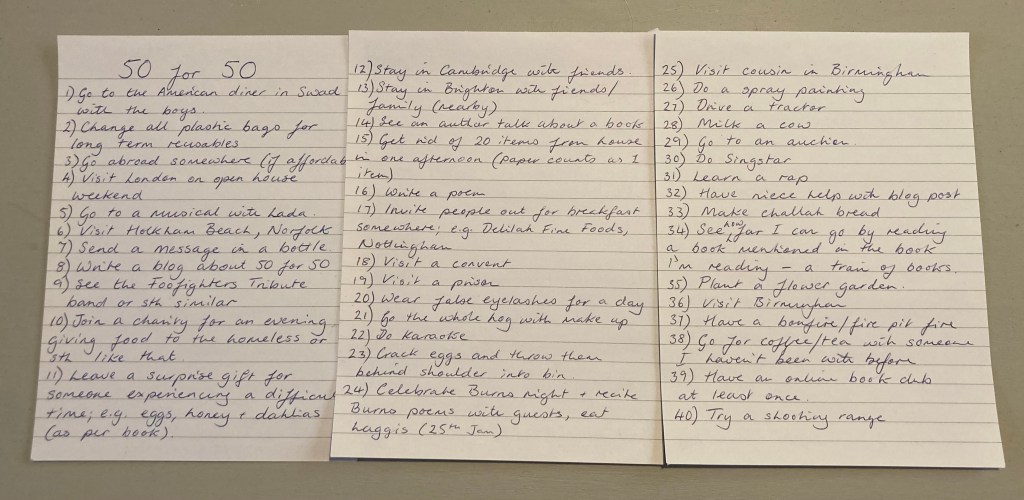 50 for 50
1) Go to the American diner in Swad
with the boys.
2) Change all plastic bags for
long term reusables
3) Go abroad somewhere (if affordab
4) Visit London on open house
weekend
5) Go to a musical with Lada.
6) Visit Holkham Beach, Norfolk
7) Send a message in a bottle
8) Write a blog about 50 for 50
9) See the Foofighters Tribute
band or sth similar
10) Join a charity for an evening
giving food to the homeless or
sth like that.
11) Leave a surprise gift for
someone experiencing a difficul
time; e.g. eggs, honey + dahlias
(as per book).
12) Stay in Cambridge with friends.
13) Stay in Brighton with friends/
family (nearby)
14) See an author talk about a book
15) Get rid of 20 items from house
in one afternoon (paper counts as 1
item)
16) Write a poem
17) Invite people out for breakfast
somewhere; e.g. Delilah Fine Foods,
Nottingham
18) Visit a convent
19) Visit a prison
20) Wear false eyelashes for a day
21) Go the whole hog with make up
22) Do Karaoke
23) Crack eggs and throw them
behind shoulder into bin
24) Celebrate Burns Night + recite
Burns poems with guests, eat
haggis (25th Jan)
25) Visit cousin in Birmingham
26) Do a spray painting
27) Drive a tractor
28) Milk a cow
29) Go to an auction.
30) Do Singstar
31) Learn a rap
32) Have niece help with blog post
33) Make challah bread
34) See how far I can go by reading
a book mentioned in the book
I'm reading – a train of books.
35) Plant a flower garden.
36) Visit Birmingham
37) Have a bonfire/fire pit fire
38) Go for coffee/tea with someone
I haven't been with before
39) Have an online book club
at least once.
40) Try a shooting range